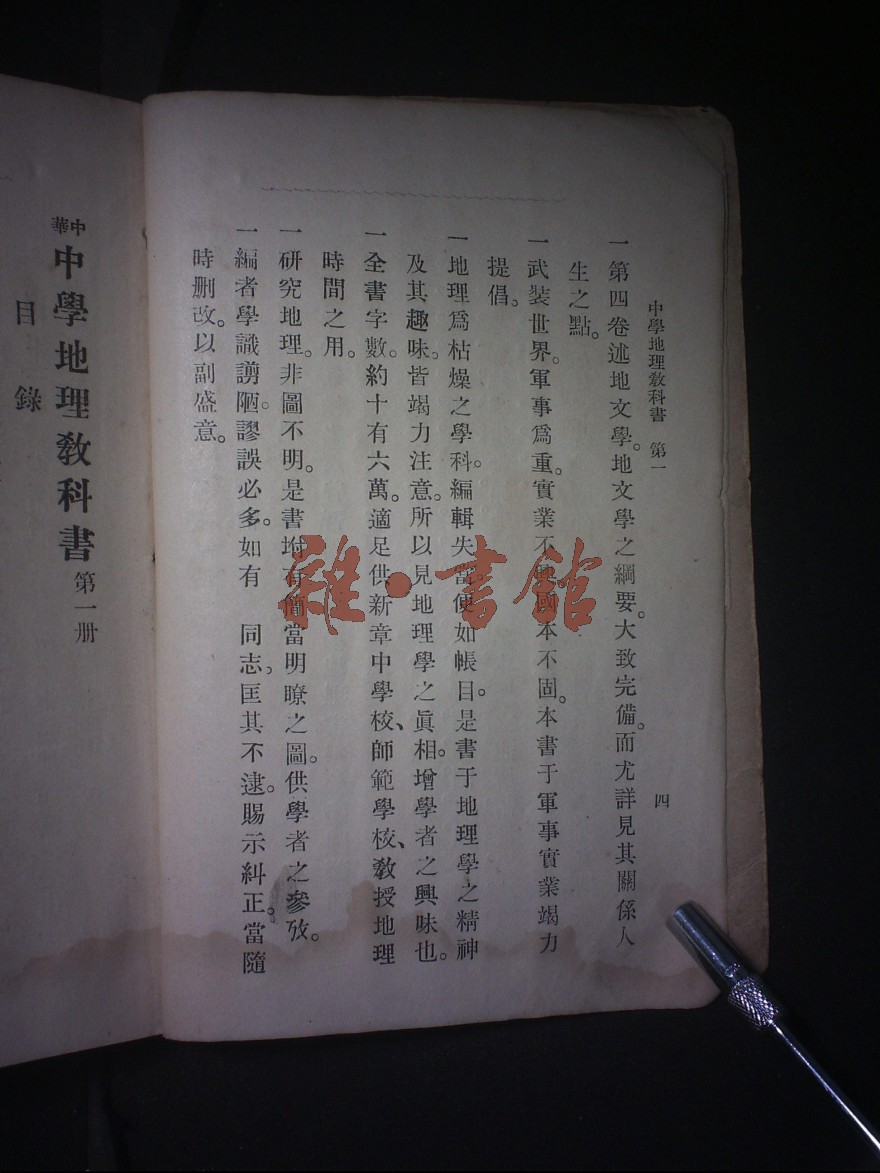 中學地理教科書 第一 四
一第四卷述地文學。地文學之綱要。大致完備。而尤詳見其關係人
生之點。
一武裝世界。軍事爲重。實業不興國本不固。本書于軍事實業竭力
提倡。
一地理爲枯燥之學科。編輯失當便如帳目。是書于地理學之精神
及其趣味。皆竭力注意。所以見地理學之眞相。增學者之興味也。
一全書字數。約十有六萬。適足供新章中學校、師範學校、教授地理
時間之用。
一研究地理。非圖不明。是書坿有簡當明瞭之圖。供學者之參攷。
一編者學識譾陋。謬誤必多。如有 同志。匡其不逮。賜示糾正。當隨
時刪改。以副盛意。
中華
中學地理敎科書第一册
目錄
雜·書館